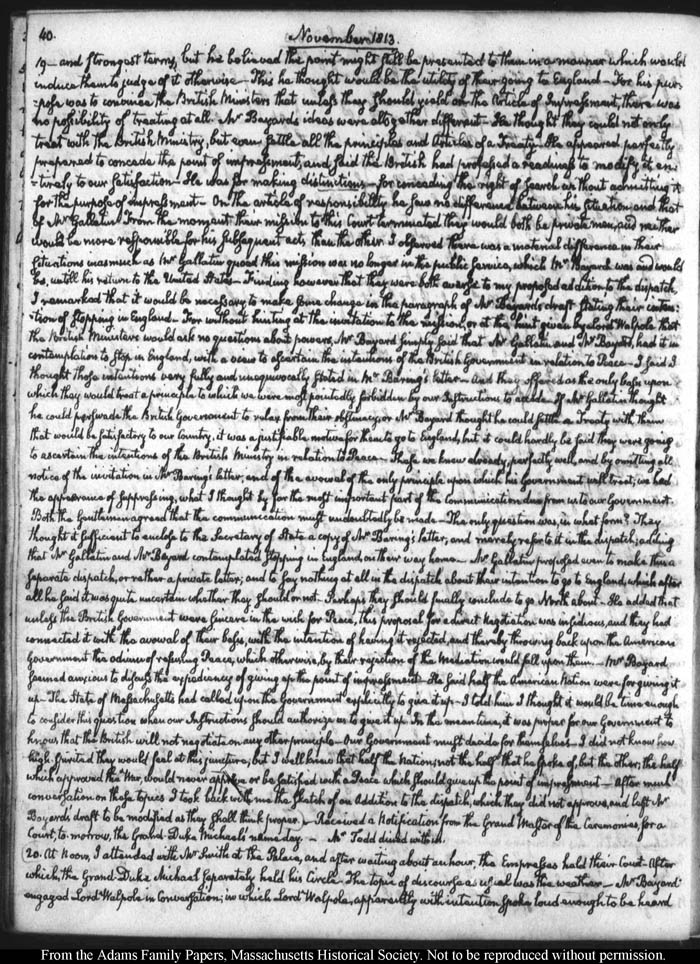 40.
November 1813.
19 — and strongest terms, but he believed the point might still be presented to them in a manner which would
induce them to judge of it otherwise — This he thought would be the utility of their going to England — For his pur-
-pose was to convince the British Ministers that unless they should yield on the Article of Impressment, there was
no possibility of treating at all. Mr Bayard's ideas were altogether different — He thought they could not only
treat with the British Ministry, but even settle all the principles and Articles of a Treaty — He appeared perfectly
prepared to concede the point of impressment, and said the British had professed a readiness to modify it en-
-tirely to our satisfaction — He was for making distinctions — for conceding the right of search without admitting it
for the purpose of impressment — On the article of responsibility he saw no difference between his situation and that
of Mr Gallatin. From the moment their mission to this Court terminated they would both be private men, and neither
would be more responsible for his subsequent acts than the other. I observed there was a material difference in their
situations inasmuch as Mr Gallatin quoad this mission was no longer in the public service, which Mr Bayard was and would
be, untill his return to the United States — Finding however that they were both averse to my proposed addition to the dispatch
I remarked that it would be necessary to make some change in the paragraph of Mr Bayard's draft stating their inten-
-tion of stopping in England — For without hinting at the invitation to the mission, or at the hint given by Lord Walpole that
the British Ministers would ask no questions about powers, Mr Bayard simply said that Mr Gallatin and Mr Bayard, had it in
contemplation to stop in England, with a view to ascertain the intentions of the British Government in relation to Peace — I said I
thought those intentions very fully and unequivocally stated in Mr Baring's letter — And they offered as the only basis upon
which they would treat a principle to which we were most pointedly forbidden by our Instructions to accede. If Mr Gallatin thought
he could perswade the British Government to relax from their obstinacy, or Mr Bayard thought he could settle a Treaty with them
that would be satisfactory to our Country, it was a justifiable motive for them to go to England, but it could hardly be said they were going
to ascertain the intentions of the British Ministry in relation to Peace — Those we knew already, perfectly well, and by omitting all
notice of the invitation in Mr Baring's letter, and of the avowal of the only principle upon which his Government will treat, we had
the appearance of suppressing, what I thought by far the most important part of the communication due from us to our Government.
Both the Gentlemen agreed that the communication must undoubtedly be made — The only question was, in what form? They
thought it sufficient to enclose to the Secretary of State a copy of Mr Baring's letter, and merely refer to it in the dispatch; adding
that Mr Gallatin and Mr Bayard contemplated stopping in England, on their way home — Mr Gallatin proposed even to make this a
separate dispatch, or rather a private letter; and to say nothing at all in the dispatch about their intention to go to England, which after
all he said it was quite uncertain whether they should or not. Perhaps they should finally conclude to go North about — He added that
unless the British Government were sincere in the wish for Peace, this proposal for a direct Negotiation was insidious, and they had
connected it with the avowal of their basis, with the intention of having it rejected, and thereby throwing back upon the American
Government the odium of refusing Peace, which otherwise, by their rejection of the Mediation would fall upon them — Mr Bayard
seemed anxious to discuss the expediency of giving up the point of impressment — He said half the American Nation were for giving it
up — The State of Massachusetts had called upon the Government explicitly to give it up — I told him I thought it would be time enough
to consider this question when our Instructions should authorize us to give it up. In the mean time, it was proper for our Government to
know that the British will not negotiate on any other principle — Our Government must decide for themselves — I did not know how
high-spirited they would feel at this juncture, but I well knew that half the Nation, not the half that he spoke of, but the other; the half
which approved the War, would never approve or be satisfied with a Peace which should give up the point of impressment — After much
conversation on these topics I took back with me the sketch of an Addition to the dispatch, which they did not approve, and left Mr
Bayard's draft to be modified as they shall think proper. — Received a Notification from the Grand Master of the Ceremonies, for a
Court, to-morrow, the Grand-Duke Michael's name-day. — Mr Todd dined with us.
20. At Noon, I attended with Mr Smith at the Palace, and after waiting about an hour, the Empresses held their Court — After
which, the Grand-Duke Michael separately held his Circle — The topic of discourse as usual was the weather — Mr Bayard
engaged Lord Walpole in Conversation; in which Lord Walpole, apparently with intention spoke loud enough to be heard
From the Adams Family Papers, Massachusetts Historical Society. Not to be reproduced without permission.